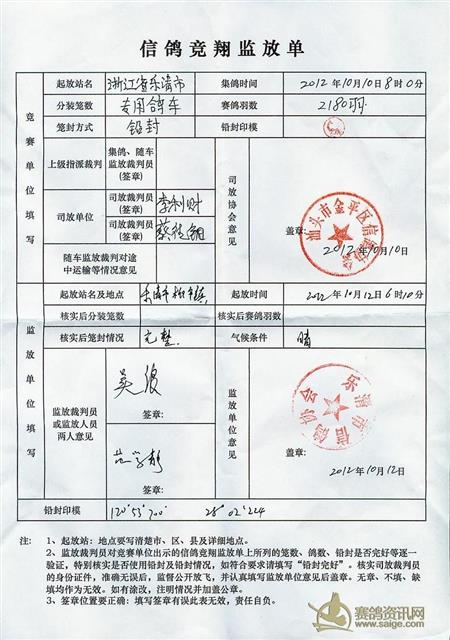 信鸽竞翔监放单
竞赛单位填写
起放站名 浙江省乐清市 集鸽时间 2012年10月10日8时0分
分装笼数 专用鸽车 赛鸽羽数 2180羽
笼封方式 铅封 铅封印模
上级指派裁判 集鸽、随车监放裁判员(签章)
司放单位 司放裁判员(签章) 李利财
司放裁判员(签章)
随车监放裁判对途中运输等情况意见
司放协会意见
汕头市金平区信鸽协会
盖章:
2012年10月10日
监放单位填写
起放站名及地点 起放时间 2012年10月12日6时10分
核实后分装笼数 核实后赛鸽羽数
核实后笼封情况 完整 气候条件 晴
监放裁判员或监放人员两人意见
签章:
签章:
监放单位意见
乐清市信鸽协会
盖章:
2012年10月12日
铅封印模 120°53′700″ 28°02′224
注: 1、起放站:地点要写清楚市、区、县及详细地点。
2、监放裁判员对竞赛单位出示的信鸽竞翔监放单上所列的笼数、鸽数、铅封是否完好等逐一
验证,特别核实是否使用铅封及铅封情况,如符合要求请填写“铅封完好”。核实司放裁判员
的身份证件,准确无误后,监督公开放飞,并认真填写监放单位意见后盖章。无章、不填、缺
填均作为无效。如有涂改,注明情况并加盖公章。
3、签章位置要正确:填写签章有误此表无效,责任自负。
赛鸽资讯网
www.saige.com